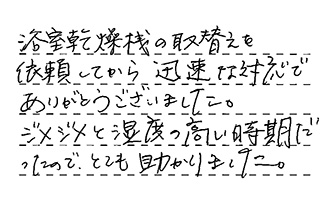 浴室乾燥機の取替えを
依頼してから 迅速な対応で
ありがとうございました。
ジメジメと湿度の高い時期だ
ったので、とても助かりました。